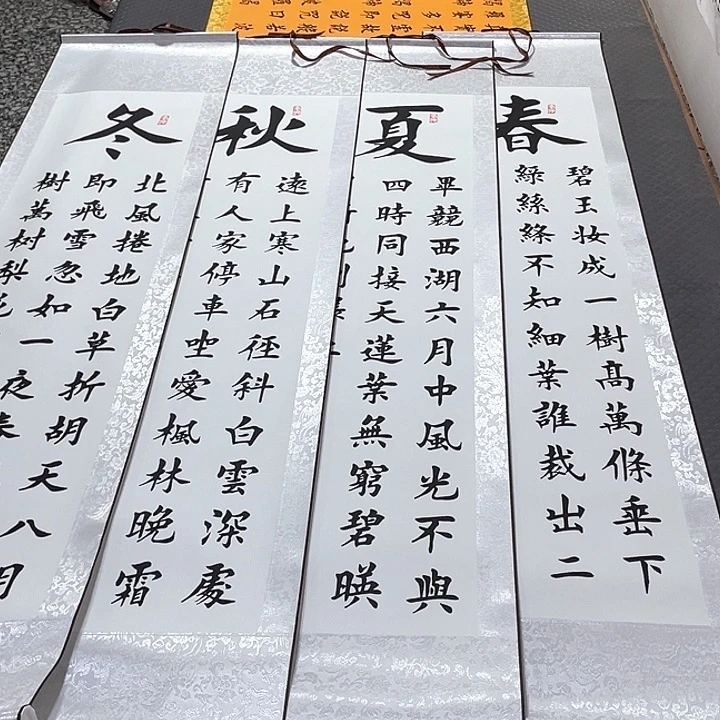 春
碧玉妆成一樹髙萬條垂下
綠絲絛不知細葉誰裁出二
夏
畢競西湖六月中風光不與
四時同接天蓮葉無窮碧暎
秋
遠上寒山石徑斜白雲深處
有人家停車坐愛楓林晚霜
冬
北風捲地白草折胡天八月
即飛雪忽如一夜春
樹萬树梨花